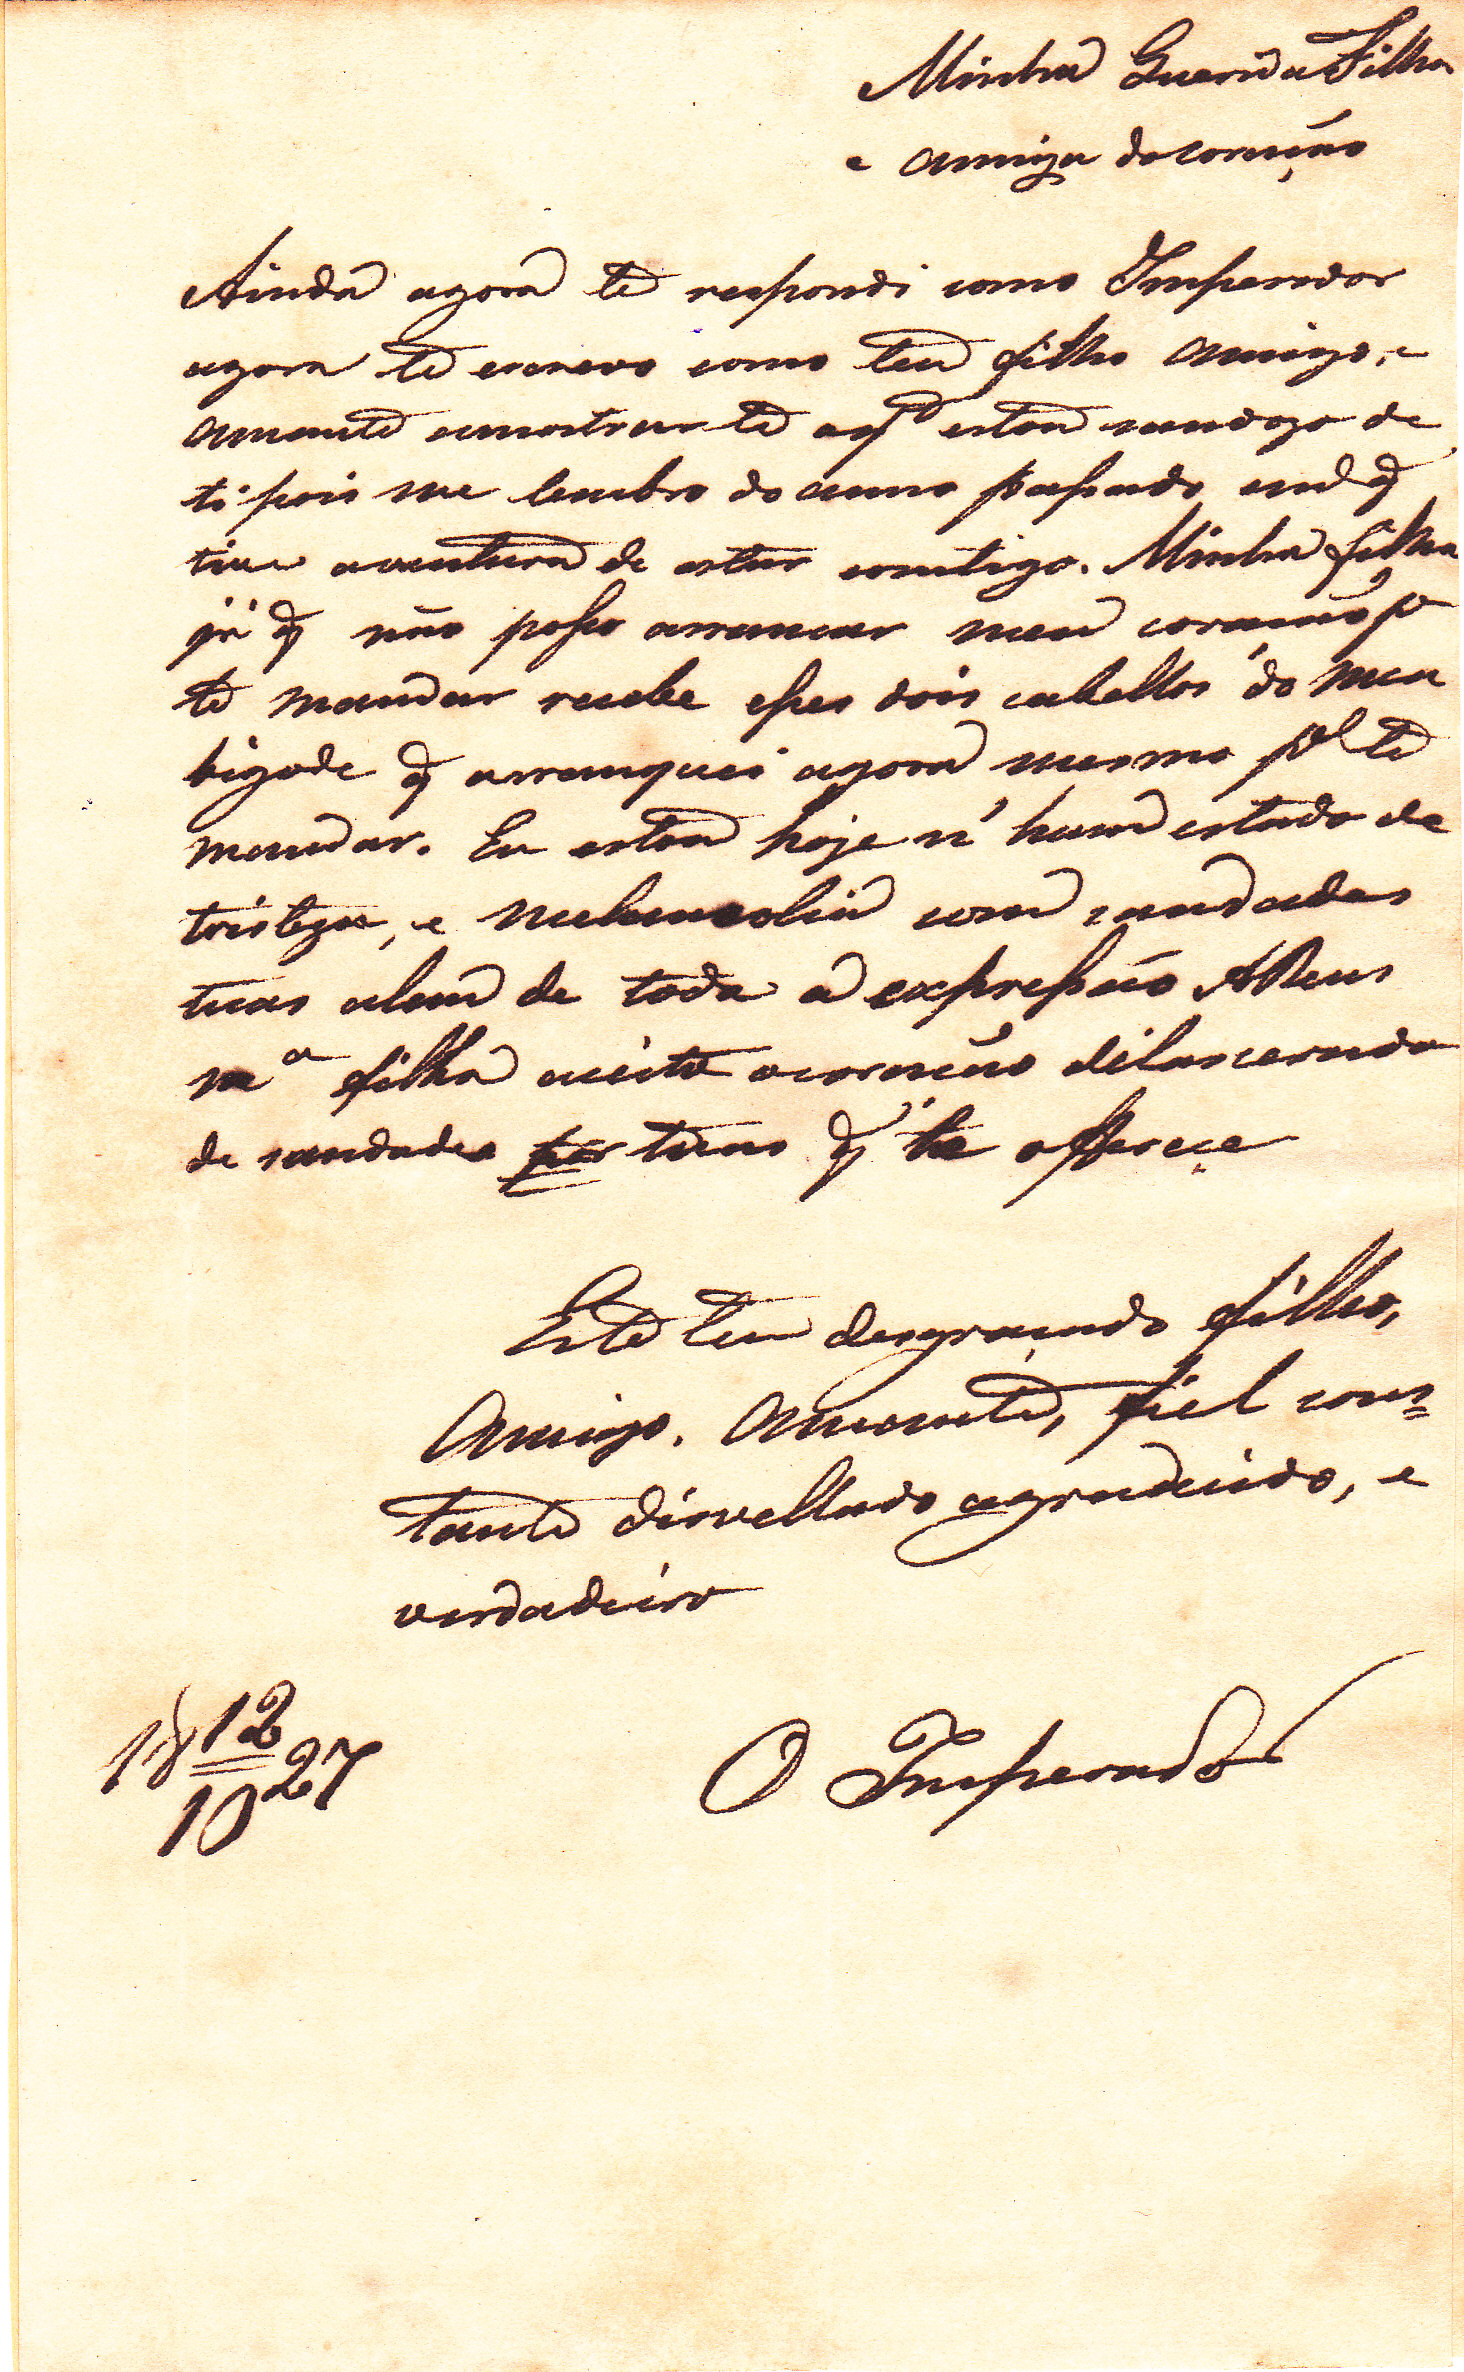 Minha Querida Filha
e amiga do coração
Ainda agora te respondi como Imperador
agora te escrevo como teu filho amigo, e
amante a mostrar-te o q.to estou saudozo de
ti pois me lembro do anno passado em q̃
tive a ventura de estar comtigo. Minha filha
já q̃ não posso arrancar meu coração p.a
te mandar recebe esses dois cabellos do meu
bigode q̃ arranquei agora mesmo p.a te
mandar. Eu estou hoje n'hum estado de
tristeza, e melancolia com saudades
tuas alem de toda a expressão ADeus
m.a filha aceita o coração dilascerado
de saudades por tuas q̃ te offerece
Este teu desgraçado filho,
Amigo. Amante, fiel cons=
tante disvellado agradecido, e
verdadeiro
O Imperador
18 12/10 27